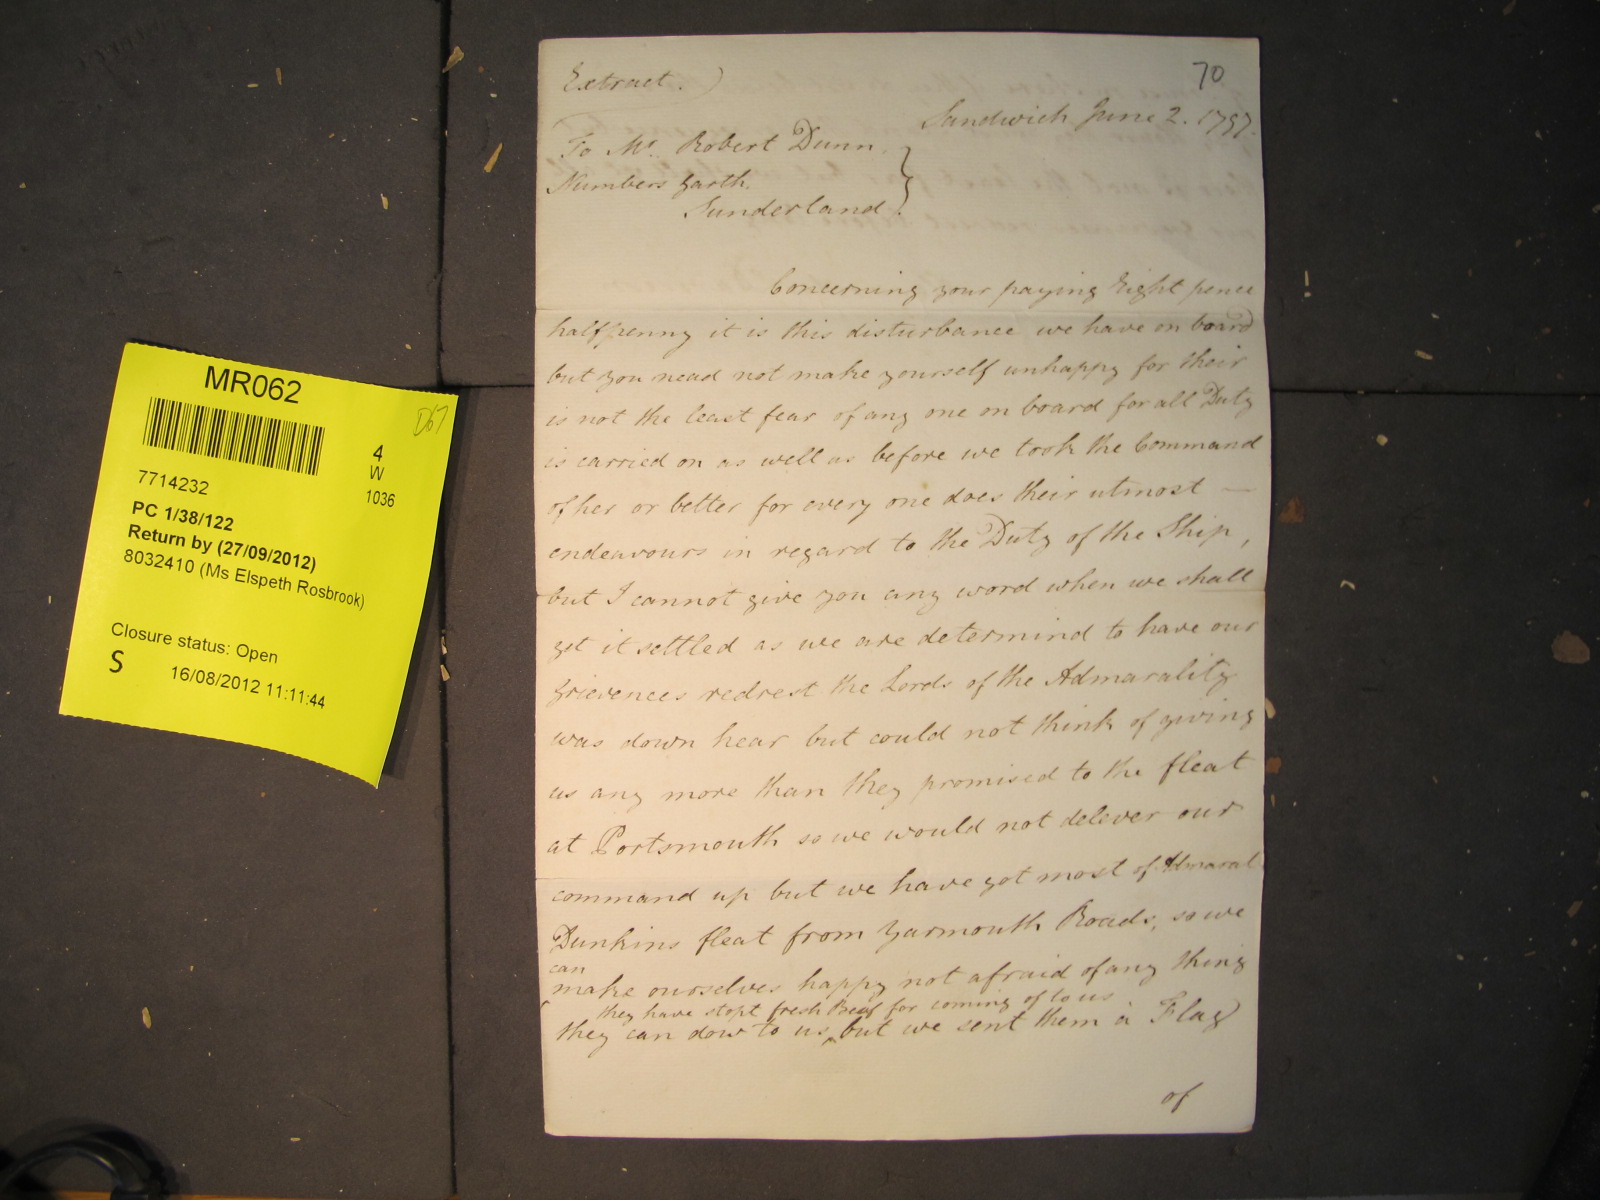 MR062
D67
4
W
1036
7714232
PC 1/38/122
Return by (27/09/2012)
8032410 (Ms Elspeth Rosbrook)
Closure status: Open
S
16/08/2012 11:11:44
70
Extract.)
Sandwich June 2. 1797.
To Mr. Robert Dunn.
Numbers Garth.
Sunderland.
Concerning your paying Eight pence
halfpenny it is this disturbance we have on board
but you nead not make yourself unhappy for their
is not the least fear of any one on board for all Duty
is carried on as well as before we took the Command
of her or better for every one does their utmost —
endeavours in regard to the Duty of the Ship,
but I cannot give you any word when we shall
get it settled as we are determind to have our
grievences redrest the Lords of the Admarality
was down hear but could not think of giving
us any more than they promised to the fleat
at Portsmouth so we would not delever our
command up but we have got most of Admaral
Dunkins fleat from Yarmouth Roads, so we
can
make ourselves happy not afraid of any thing
they have stopt fresh Beef for coming of to us
they can dow to us, ‸ but we sent them a Flag
of